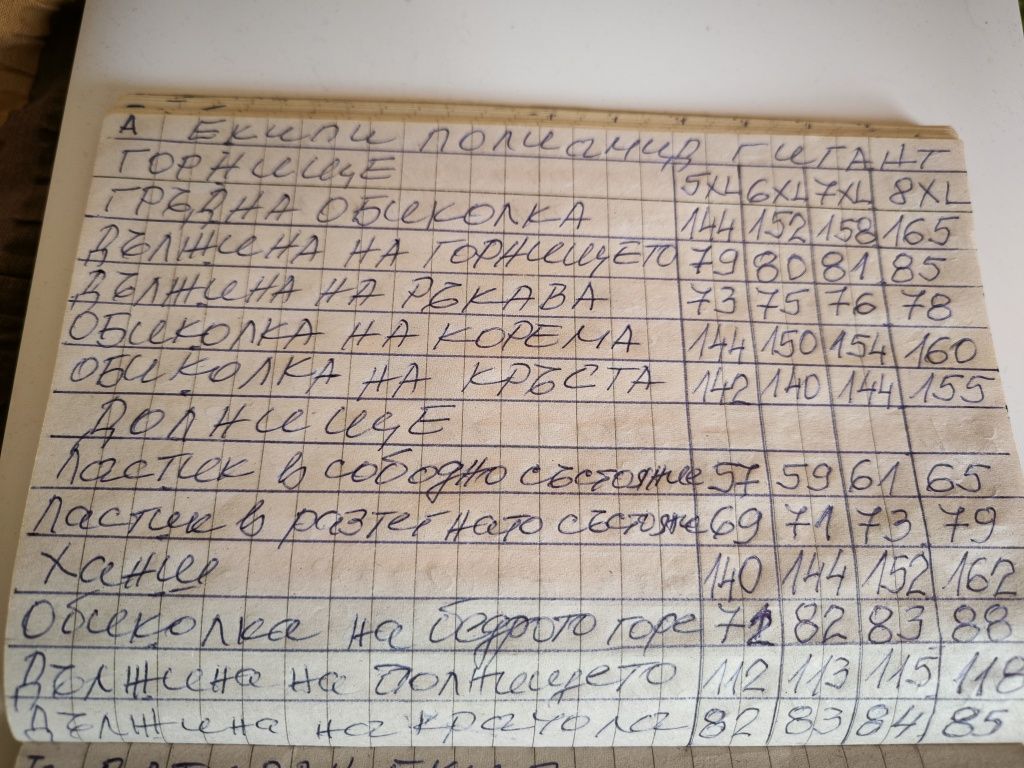 А ЕКИПИ ПОЛИАМИД ГИГАНТ
ГОРНИЩЕ 5XL 6XL 7XL 8XL
ГРЪДНА ОБИКОЛКА 144 152 158 165
ДЪЛЖИНА НА ГОРНИЩЕТО 79 80 81 85
ДЪЛЖИНА НА РЪКАВА 73 75 76 78
ОБИКОЛКА НА КОРЕМА 144 150 154 160
ОБИКОЛКА НА КРЪСТА 142 140 144 155
ДОЛНИЩЕ
Ластик в сободно състояние 57 59 61 65
Ластик в разтегнато състояне 69 71 73 79
Ханш 140 144 152 162
Обиколка на бедрото горе 82 83 88
Дължина на долнището 112 113 115 118
Дължина на крачола 82 83 84 85